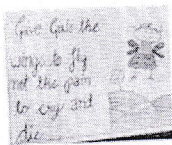 Give Gals the
wings to fly
not the pain
to cry and
die